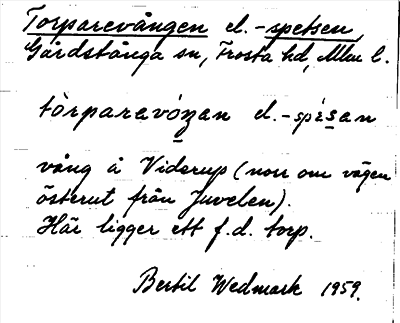 Torparevången el. -spetsen,
Gårdstånga sn, Frosta hd, Mlm l.
tòrparavóŋan el. -spésan
vång å Viderup (norr om vägen
österut från Juvelen).
Här ligger ett f.d. torp.
Bertil Wedmark 1959.